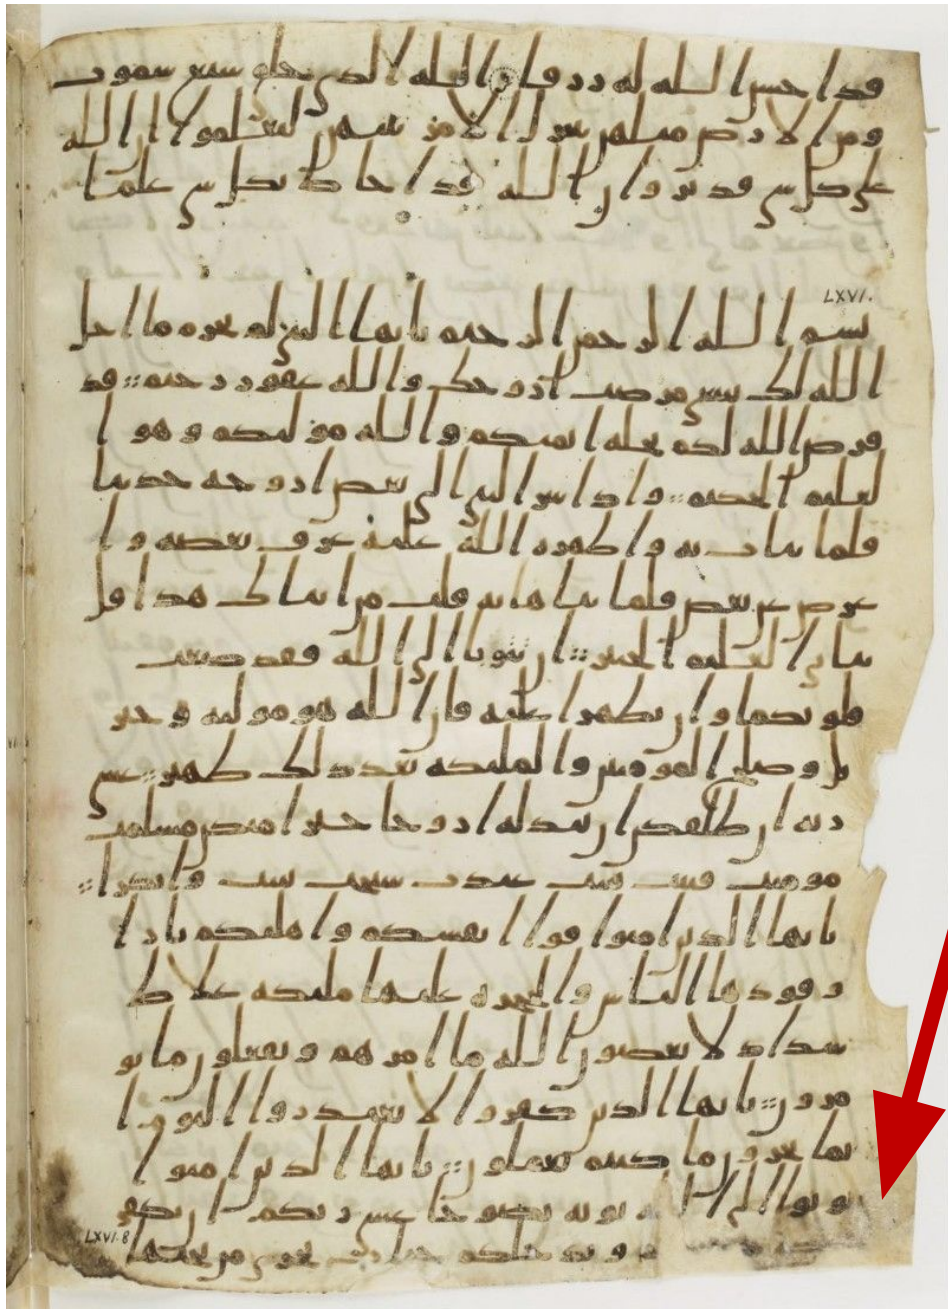 قد احسن الله له رزقا الله الذي خلق سبع سموت
ومن الارض مثلهن يتنزل الامر بينهن لتعلموا ان الله
على كل شي قدير وان الله قد احاط بكل شي علما
LXVI.
بسم الله الرحمن الرحيم يايها النبي لم تحرم ما احل
الله لك تبتغي مرضت ازوجك والله غفور رحيم قد
فرض الله لكم تحلة ايمنكم والله موليكم وهو ا
لعليم الحكيم واذ اسر النبي الى بعض ازوجه حديثا
فلما نبات به واظهره الله عليه عرف بعضه وا
عرض عن بعض فلما نباها به قلت من انباك هذا قل
نباني العليم الخبير ان تتوبا الى الله فقد صغت
قلوبكما وان تظهرا عليه فان الله هو موليه وجبر
يل وصلح المومنين والمليكة بعد ذلك ظهير عسى
ربه ان طلقكن ان يبدله ازوجا خيرا منكن مسلمت
مومنت قنتت تيبت عبدت سيحت ثيبت وابكرا
يايها الذين امنوا قوا انفسكم واهليكم نارا
وقودها الناس والحجرة عليها مليكة غلاظ
شداد لا يعصون الله ما امرهم ويفعلون ما يو
مرون يايها الذين كفروا لا تعتذروا اليوم ا
نما تجزون ما كنتم تعملون يايها الذين امنوا
توبوا الى الله توبة نصوحا عسى ربكم ان يكفر
ويدخلكم جنت تجري من تحتها
LXVI.8